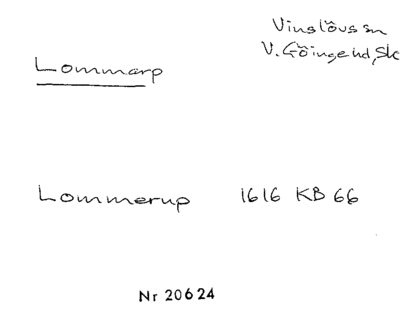 Vinslövs sn
V. Göinge hd, Sk
Lommarp
Lommerup 1616 KB 66
Nr 20624